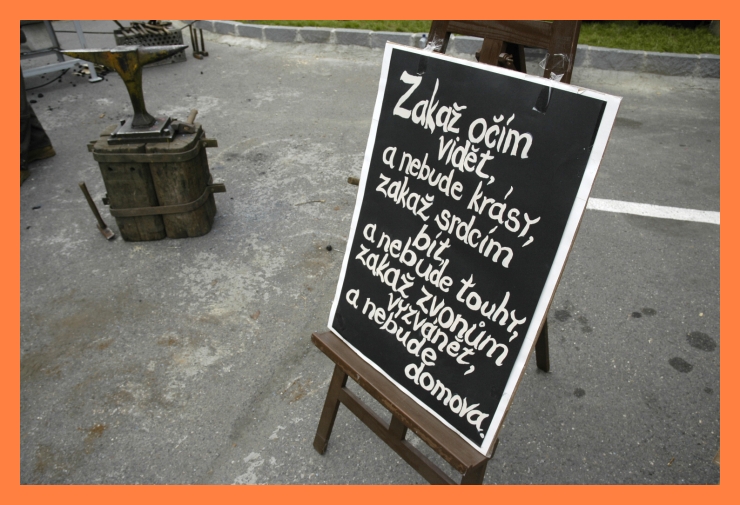 Zakaž očím
vidět,
a nebude krásy,
zakaž srdcím
bít,
a nebude touhy,
zakaž zvonům
vyzvánět,
a nebude
domova.